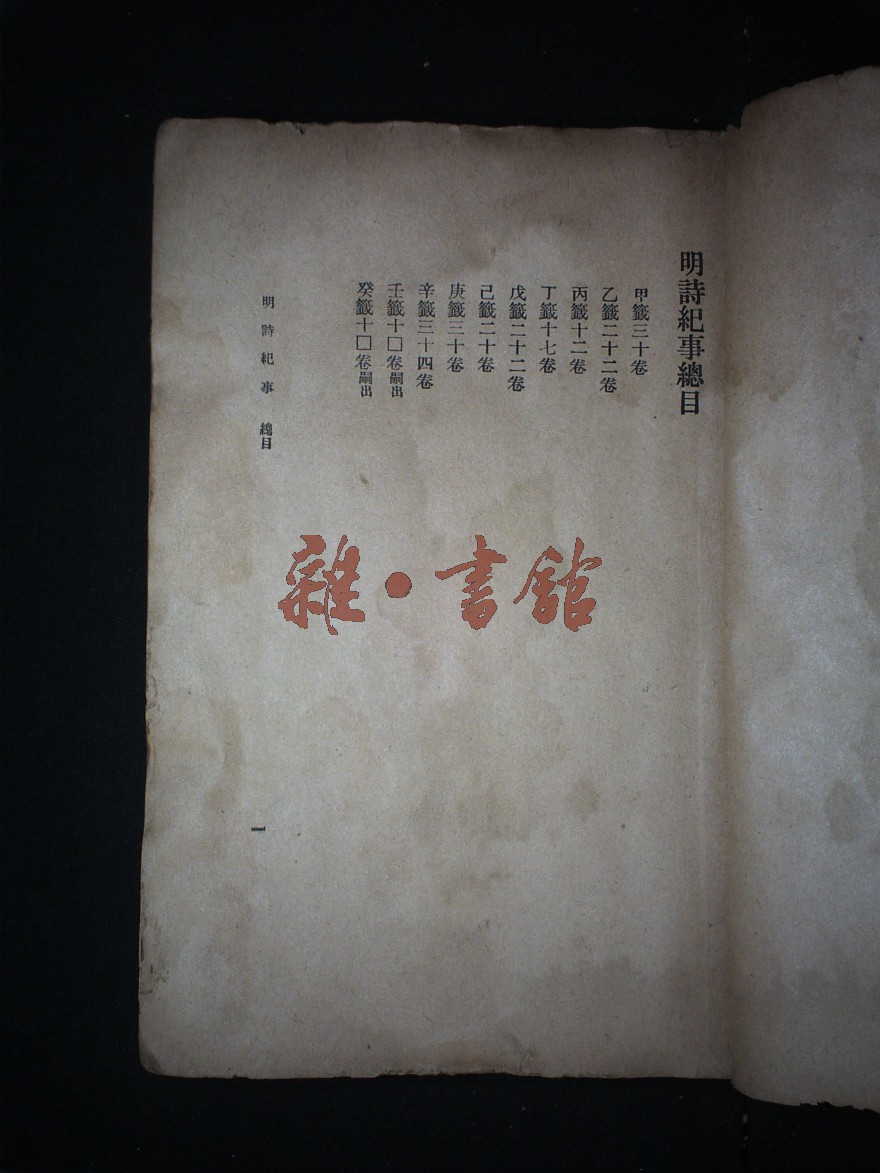 明詩紀事總目
甲籤三十卷
乙籤二十二卷
丙籤十二卷
丁籤十七卷
戊籤二十二卷
己籤二十卷
庚籤三十卷
辛籤三十四卷
壬籤十□卷嗣出
癸籤十□卷嗣出
明詩紀事 總目
一
雜·書館